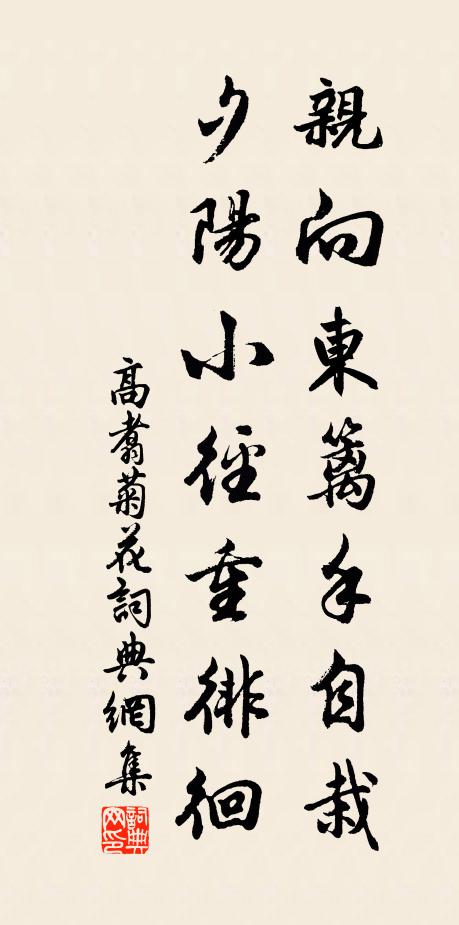 親向東籬手自栽
夕陽小徑重徘徊
高翥菊花詞典網集
詞典網印